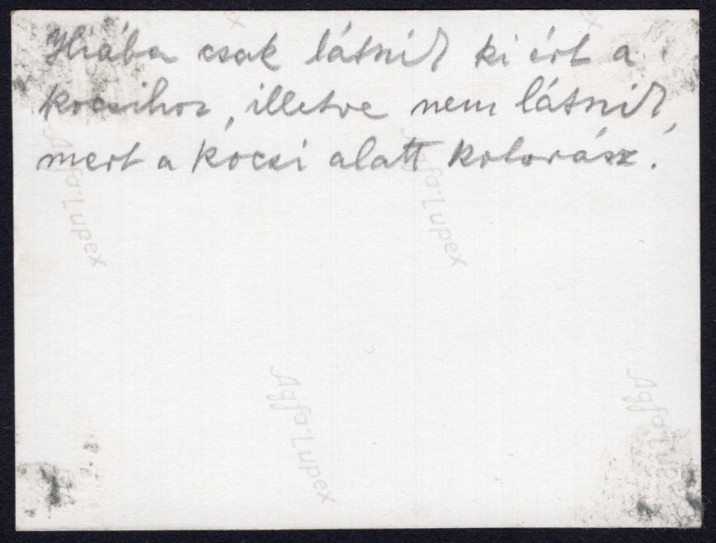 Hiába csak látnid ki ért a
kocsihoz, illetve nem látnid,
mert a kocsi alatt kotorász.
Agfa-Lupex
Agfa-Lupex
Agfa-Lupex
Agfa-Lupex